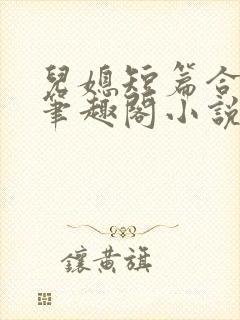 兒媳短篇合
筆趣閣小說
鑲黃旗